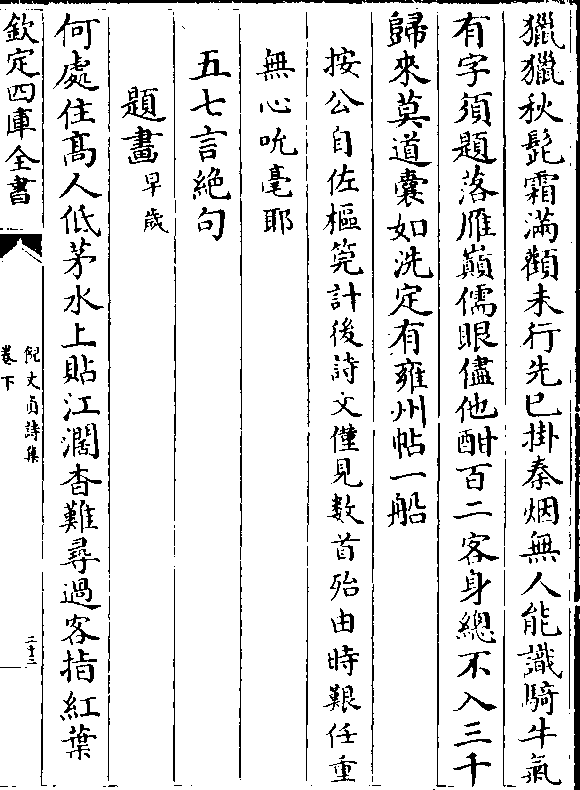 獵獵秋髭霜滿顴未行先已掛秦烟無人能識騎牛氣
有字須題落雁巔儒眼儘他酣百二客身總不入三千
歸來莫道囊如洗定有雍州帖一船
按公自佐樞筦計後詩文僅見数首殆由時艱任重
無心吮毫耶
五七言絶句
題畫早歳
何處住髙人低茅水上貼江濶杳難尋過客指紅葉
欽定四庫全書
倪文貞詩集
卷下
二十三